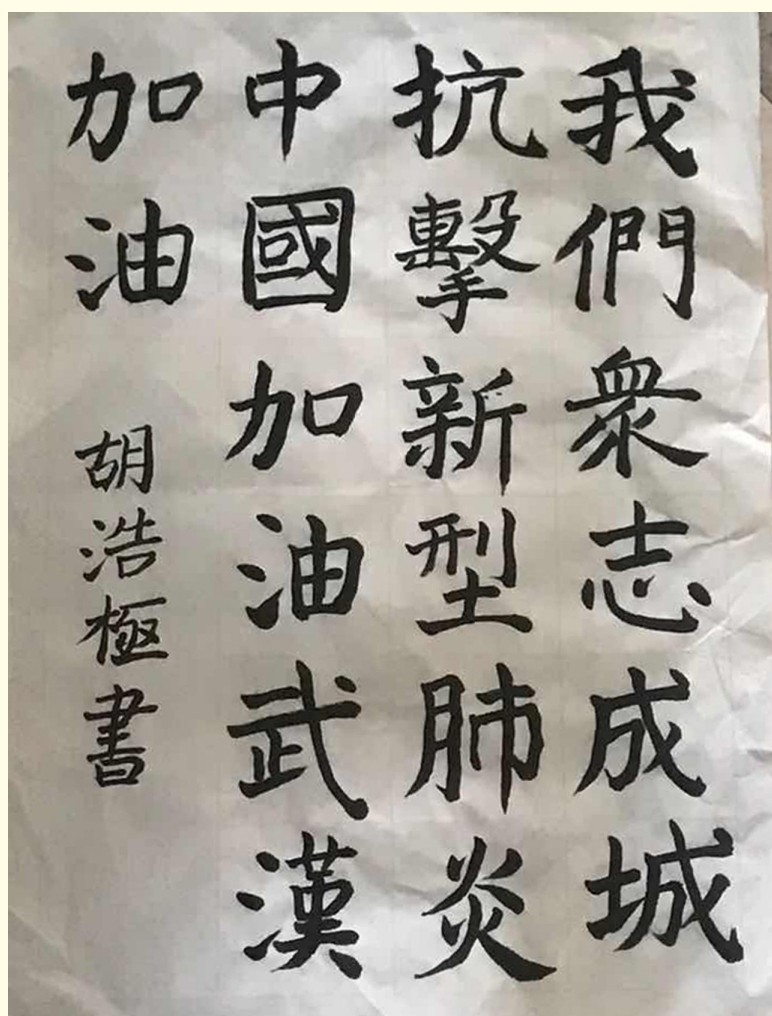 我們衆志成城
抗擊新型肺炎
中國加油武漢
加油
胡浩極書